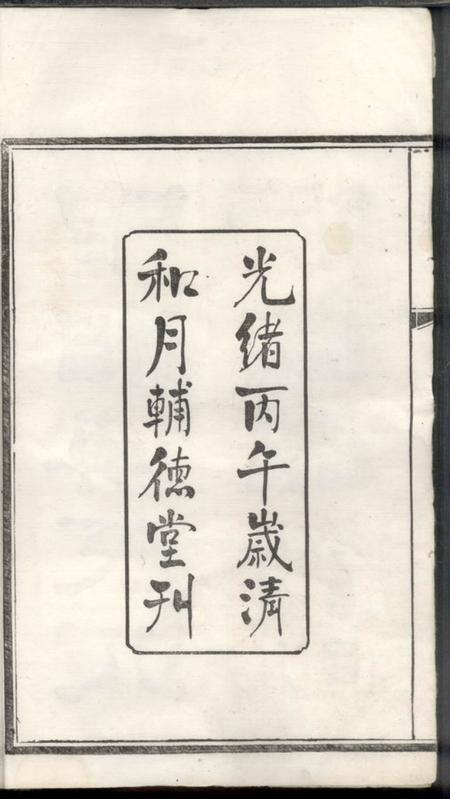 光緒丙午歲清
和月輔德堂刋